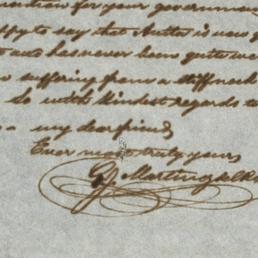 for your governmen
ppy to say that Auttee is now
has never been quite we
suffering from a stiffneck
do with kindest regards to
my dear friend,
Ever most truly yours